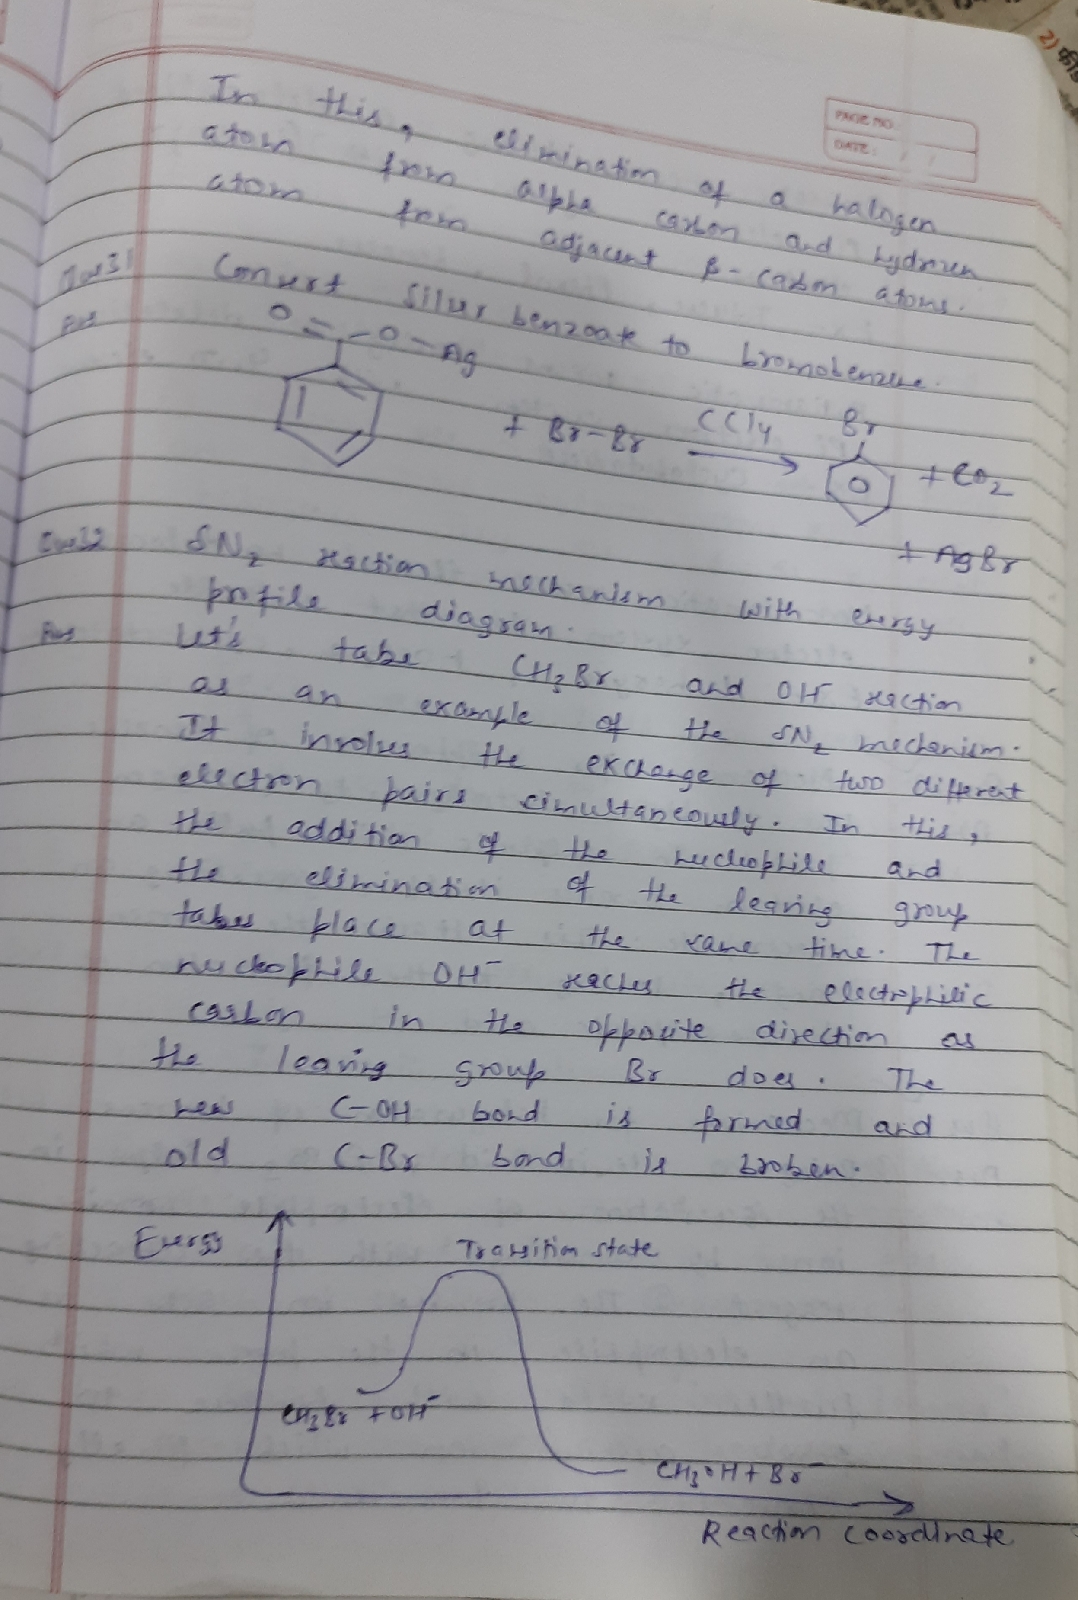 PAGE NO.
DATE: / /
2)
In this, elimination of a halogen
atom from alpha carbon and hydrogen
atom from adjacent β-carbon atoms.
Convert Silver benzoate to bromobenzene.
Ans
O
O-Ag
+ Br-Br
CCl4
Br
+ CO2
+ AgBr
SN2 reaction mechanism with energy
profile diagram.
Ans
Let's take CH3Br and OH- reaction
as an example of the SN2 mechanism.
It involves the exchange of two different
electron pairs simultaneously. In this,
the addition of the nucleophile and
the elimination of the leaving group
takes place at the same time. The
nucleophile OH- reaches the electrophilic
carbon in the opposite direction as
the leaving group Br does. The
new C-OH bond is formed and
old C-Br bond is broken.
Energy
Transition state
CH3Br + OH-
CH3OH + Br-
Reaction coordinate